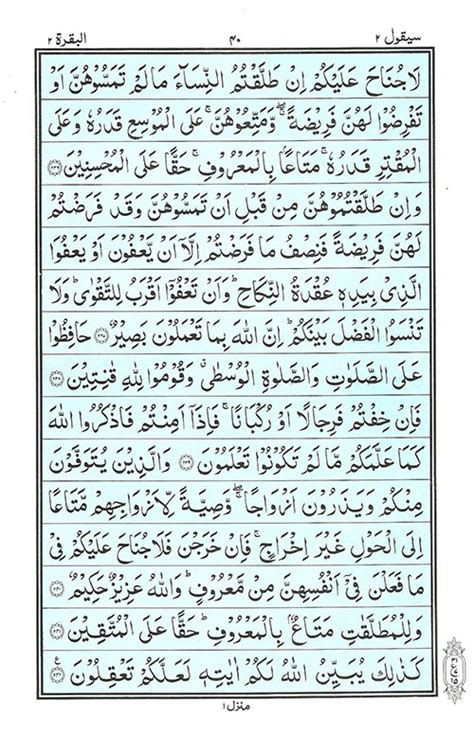 سيقول ٢ ٤٠ البقرة ٢
لَا جُنَاحَ عَلَيْكُمْ اِنْ طَلَّقْتُمُ النِّسَآءَ مَا لَمْ تَمَسُّوْهُنَّ اَوْ
تَفْرِضُوْا لَهُنَّ فَرِيْضَةً ۖۚ وَّمَتِّعُوْهُنَّ ۚ عَلَى الْمُوْسِعِ قَدَرُهٗ وَعَلَى
الْمُقْتِرِ قَدَرُهٗ ۚ مَتَاعًاۢ بِالْمَعْرُوْفِ ۚ حَقًّا عَلَى الْمُحْسِنِيْنَ ﴿٢٣٦﴾
وَاِنْ طَلَّقْتُمُوْهُنَّ مِنْ قَبْلِ اَنْ تَمَسُّوْهُنَّ وَقَدْ فَرَضْتُمْ
لَهُنَّ فَرِيْضَةً فَنِصْفُ مَا فَرَضْتُمْ اِلَّاۤ اَنْ يَّعْفُوْنَ اَوْ يَعْفُوَا
الَّذِيْ بِيَدِهٖ عُقْدَةُ النِّكَاحِ ؕ وَاَنْ تَعْفُوْۤا اَقْرَبُ لِلتَّقْوٰى ؕ وَلَا
تَنْسَوُا الْفَضْلَ بَيْنَكُمْ ؕ اِنَّ اللّٰهَ بِمَا تَعْمَلُوْنَ بَصِيْرٌ ﴿٢٣٧﴾ حَافِظُوْا
عَلَى الصَّلَوٰتِ وَالصَّلٰوةِ الْوُسْطٰى ۗ وَقُوْمُوْا لِلّٰهِ قٰنِتِيْنَ ﴿٢٣٨﴾
فَاِنْ خِفْتُمْ فَرِجَالًا اَوْ رُكْبَانًا ۚ فَاِذَاۤ اَمِنْتُمْ فَاذْكُرُوا اللّٰهَ
كَمَا عَلَّمَكُمْ مَّا لَمْ تَكُوْنُوْا تَعْلَمُوْنَ ﴿٢٣٩﴾ وَالَّذِيْنَ يُتَوَفَّوْنَ
مِنْكُمْ وَيَذَرُوْنَ اَزْوَاجًا ۖۚ وَّصِيَّةً لِّاَزْوَاجِهِمْ مَّتَاعًا
اِلَى الْحَوْلِ غَيْرَ اِخْرَاجٍ ۚ فَاِنْ خَرَجْنَ فَلَا جُنَاحَ عَلَيْكُمْ فِيْ
مَا فَعَلْنَ فِيْۤ اَنْفُسِهِنَّ مِنْ مَّعْرُوْفٍ ؕ وَاللّٰهُ عَزِيْزٌ حَكِيْمٌ ﴿٢٤٠﴾
وَلِلْمُطَلَّقٰتِ مَتَاعٌۢ بِالْمَعْرُوْفِ ؕ حَقًّا عَلَى الْمُتَّقِيْنَ ﴿٢٤١﴾
كَذٰلِكَ يُبَيِّنُ اللّٰهُ لَكُمْ اٰيٰتِهٖ لَعَلَّكُمْ تَعْقِلُوْنَ ﴿٢٤٢﴾
منزل ١